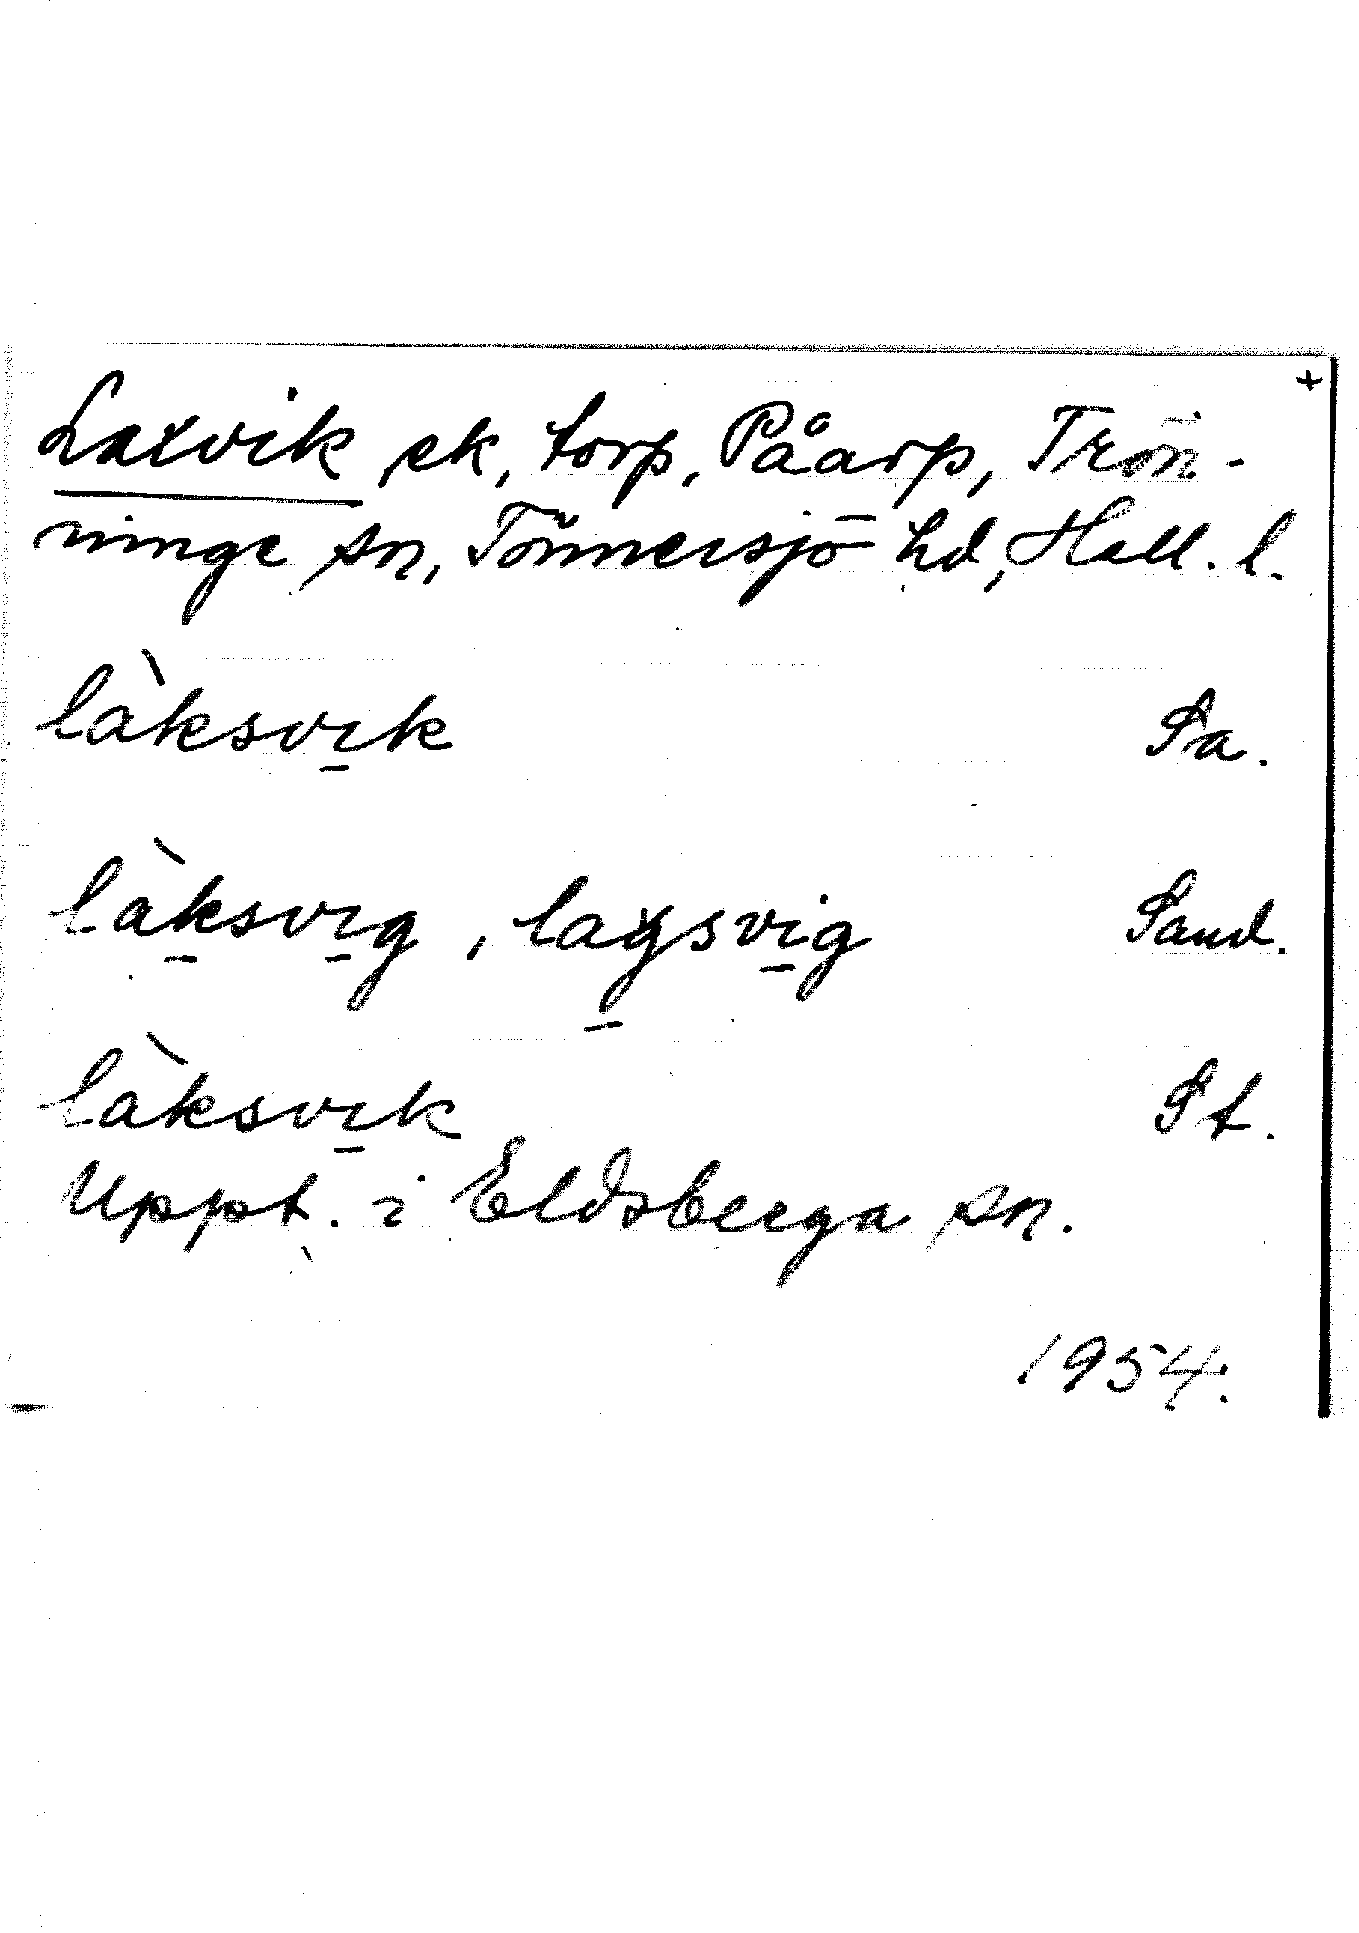 +
Laxvik ek, torp, Påarp, Trön-
ninge sn, Tönnersjö hd, Hall. l.
làksvı̱k Sa.
làḵsvı̱g, lag̱svi̱g Sand.
làksvı̱k St.
Uppt. i Eldsberga sn.
1954.